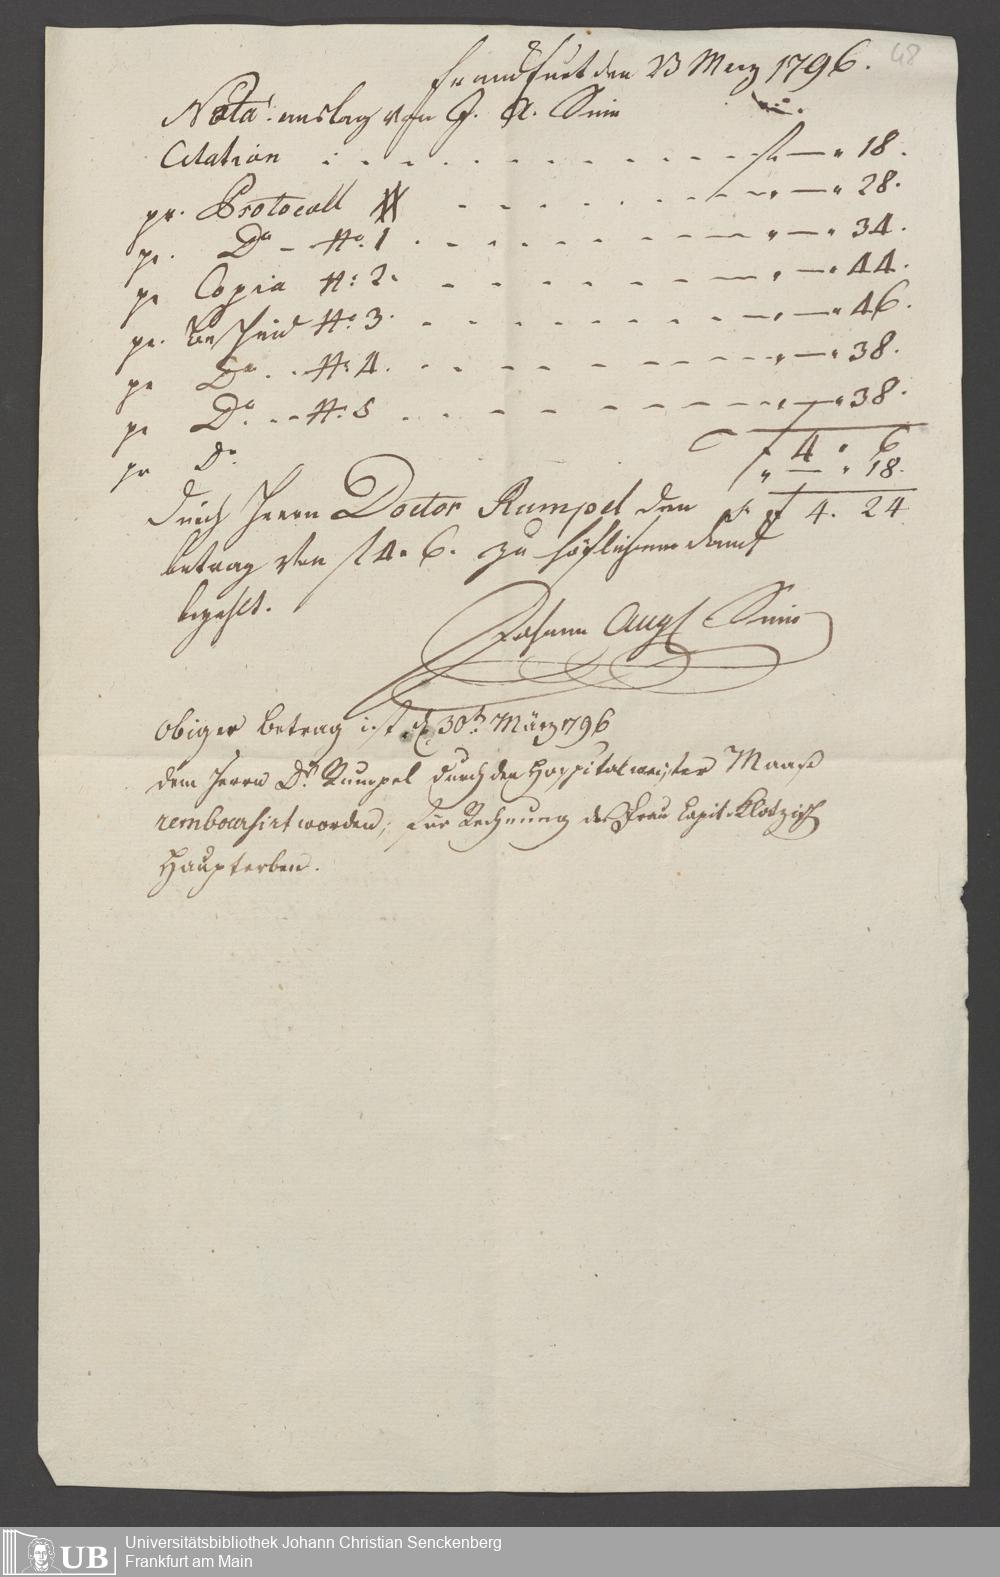 48
Frankfurt den 23 Merz 1796.
Nota: auslag von J. A.
Citation f — " 18.
pr. Protocoll " — " 28.
pr. Do - No. 1 " — " 34.
pr Copia N: 2. " — " 44.
pr. Bescheid No. 3. " — " 46.
pr Do. N: 4. " — " 38.
pr Do. N: 5 " — " 38.
pr Do.
f 4 " 6
" — " 18.
f 4. 24
durch Herrn Doctor Rumpel den
betrag von f 4. 6. zu höflichem danck
bezahlt.
Johann Aug
Obiger Betrag ist d. 30t. März 1796
dem Herrn Dr. Rumpel durch den Hospitalmeister Maaß
remboursirt worden, für Rechnung der Frau Capit. Klotzisch
Haupterben.
UB
Universitätsbibliothek Johann Christian Senckenberg
Frankfurt am Main